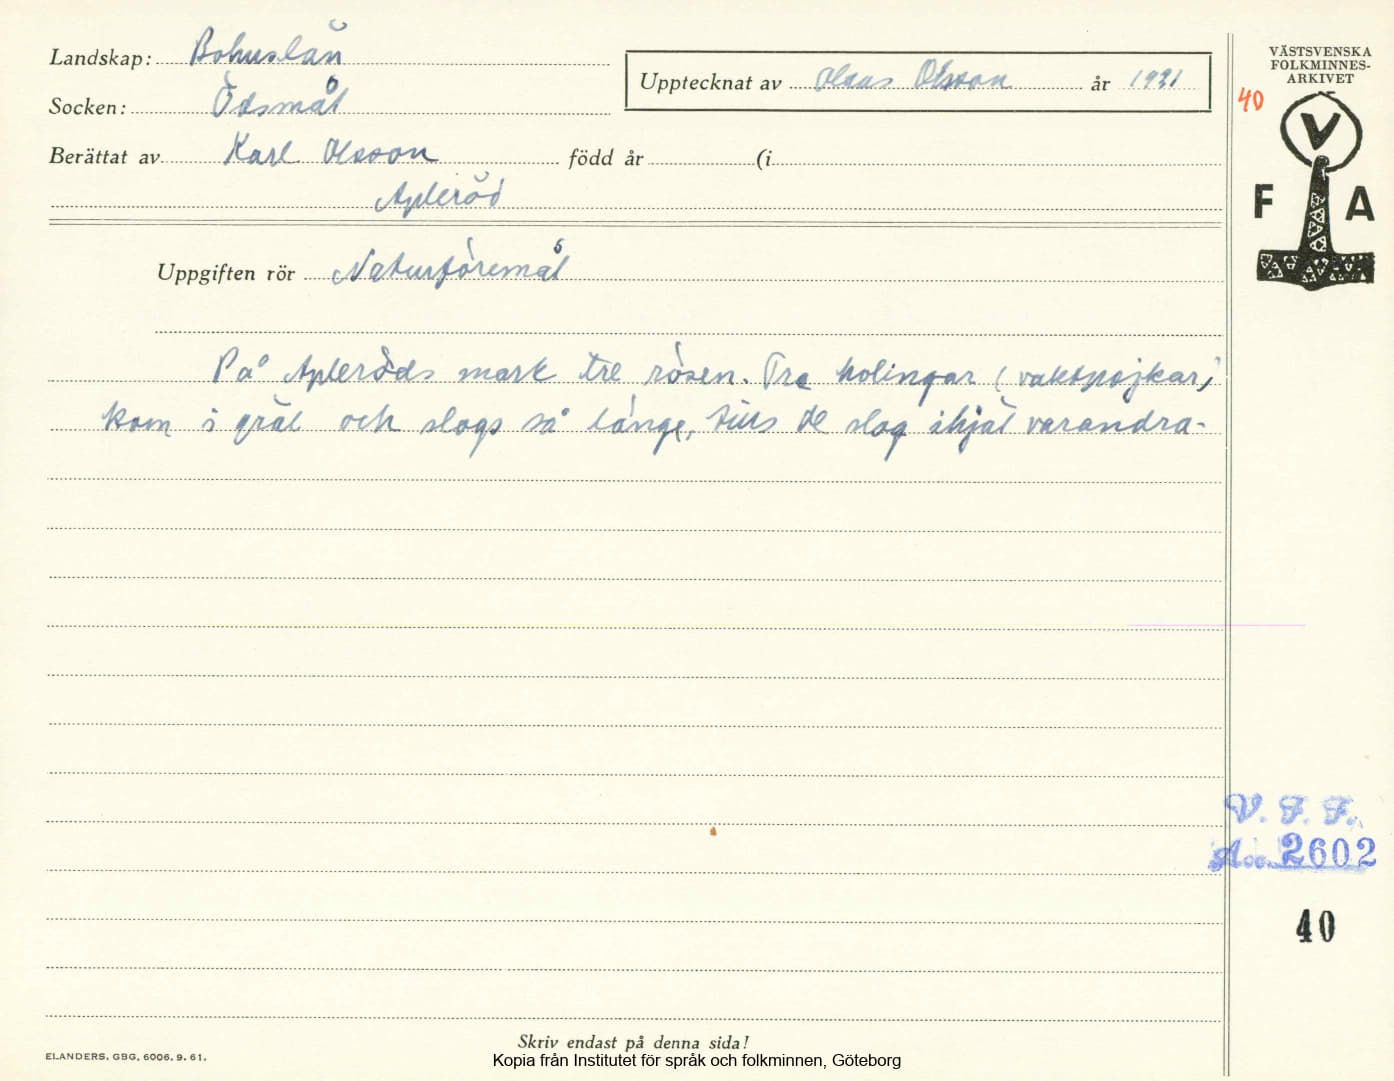 Landskap: Bohuslän
Socken: Ödsmål
Upptecknat av Olsson år 1931
Berättat av Karl Olsson född år (i
Apleröd
Uppgiften rör Naturföremål
På Apleröds mark tre rösen. Tre holingar (vaktpojkar)
kom i gräl och slogs så länge, tills de slog ihjäl varandra.
VÄSTSVENSKA
FOLKMINNES-
ARKIVET
40
V
F A
V. F. F.
Acc. 2602
40
Skriv endast på denna sida!
ELANDERS, GBG, 6006. 9. 61.
Kopia från Institutet för språk och folkminnen, Göteborg